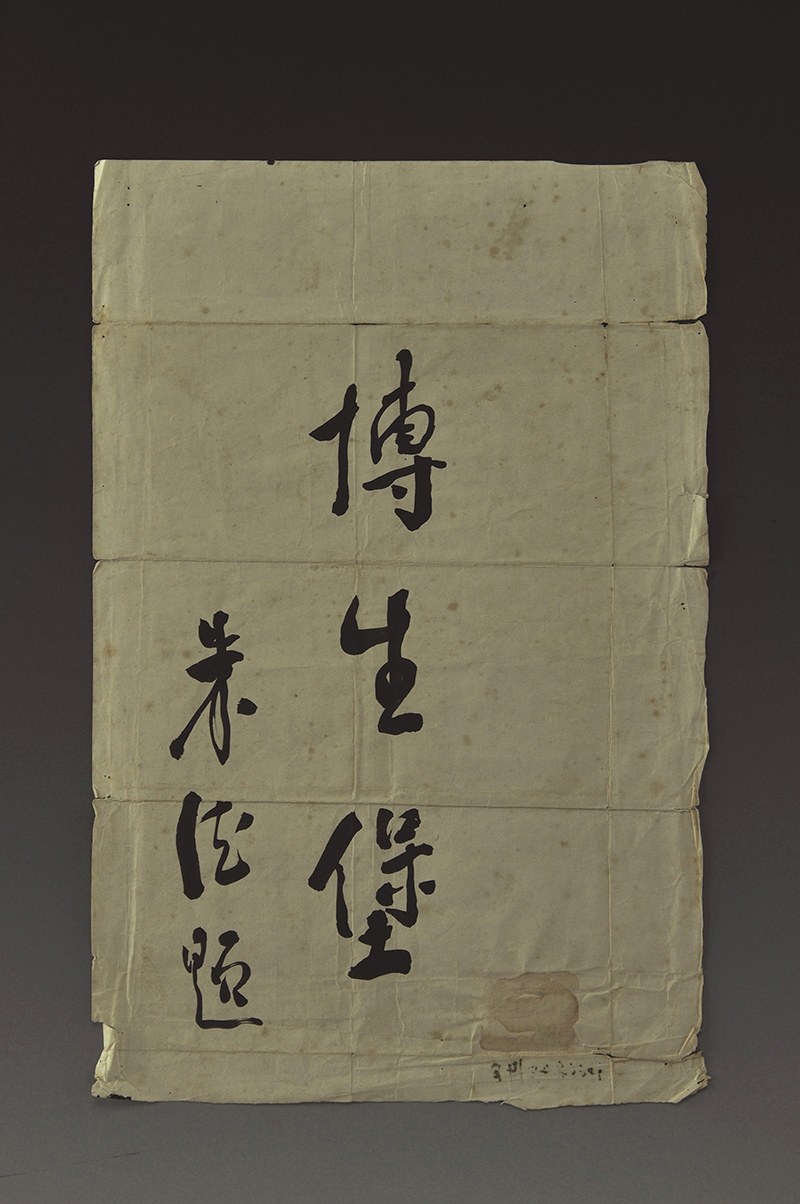 博生堡
朱德题